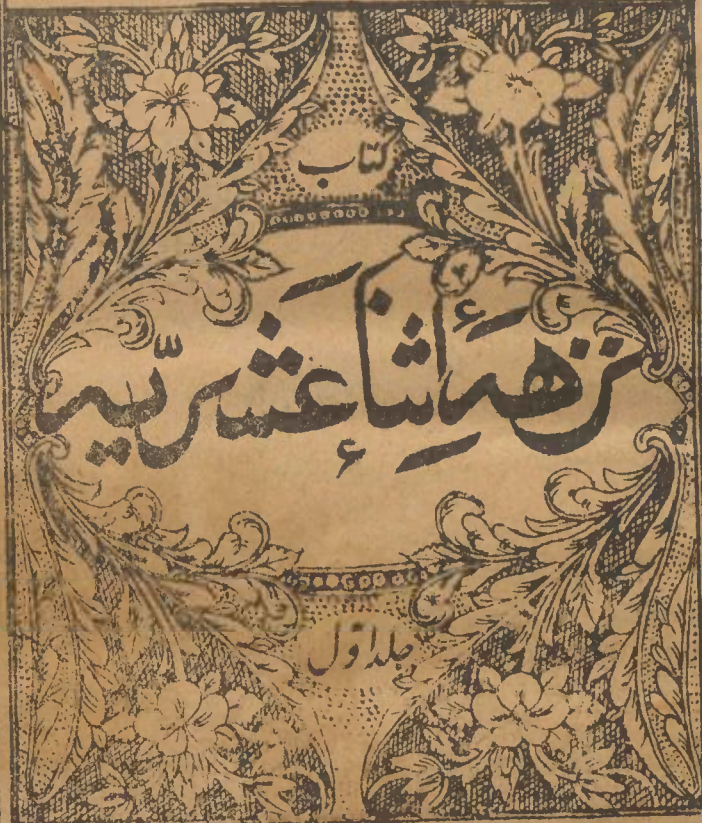 کتاب
نزهۀ إثنا عَشَریّیه
جلد اوّل